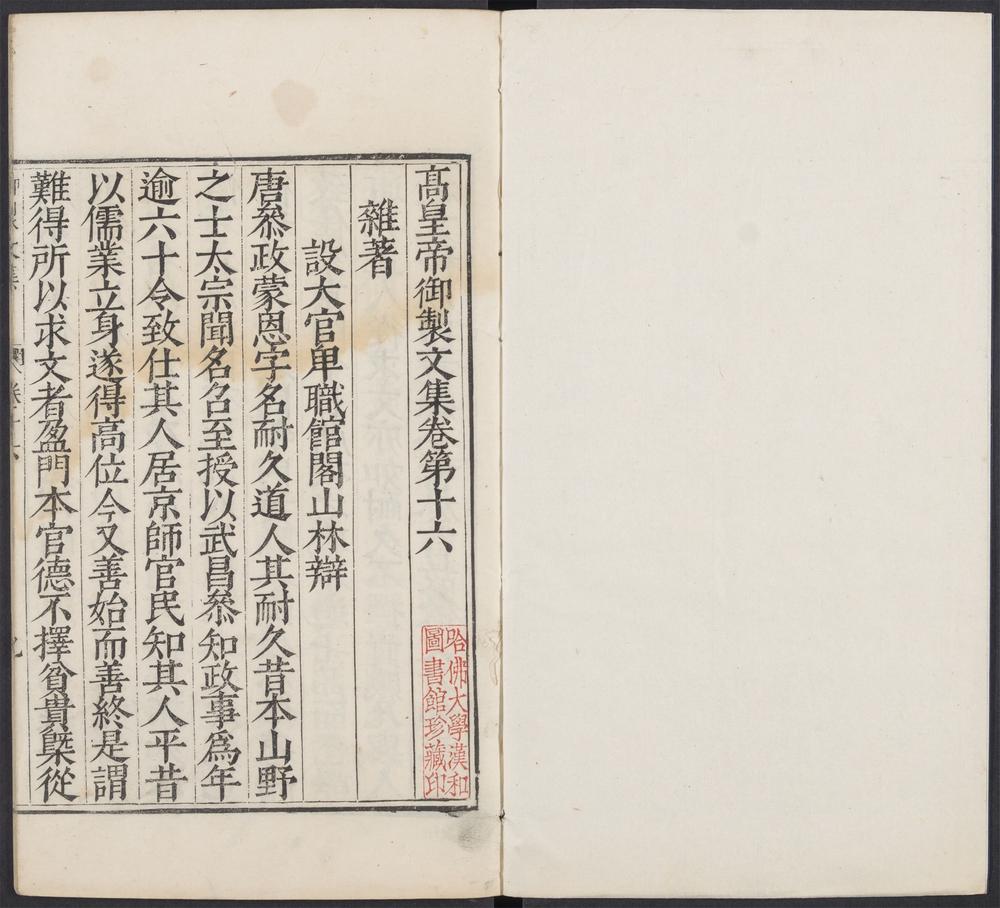 髙皇帝御製文集卷第十六
雜著
設大官卑職館閣山林辯
唐叅政蒙恩字名耐久道人其耐久昔本山野
之士太宗聞名召至授以武昌叅知政事爲年
逾六十令致仕其人居京師官民知其人平昔
以儒業立身遂得高位今又善始而善終是謂
難得所以求文者盈門本官德不擇貧貴槩從
哈佛大學漢和
圖書館珍藏印